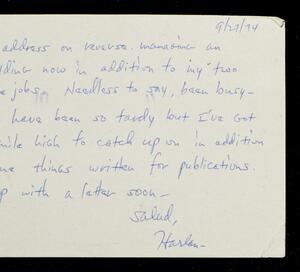 9/27/74
address on reverse. managing an
ding now in addition to my two
e jobs. Needless to say, been busy—
have been so tardy but I've got
mile high to catch up on in addition
me things written for publications.
p with a letter soon—
Salud,
Harlan—